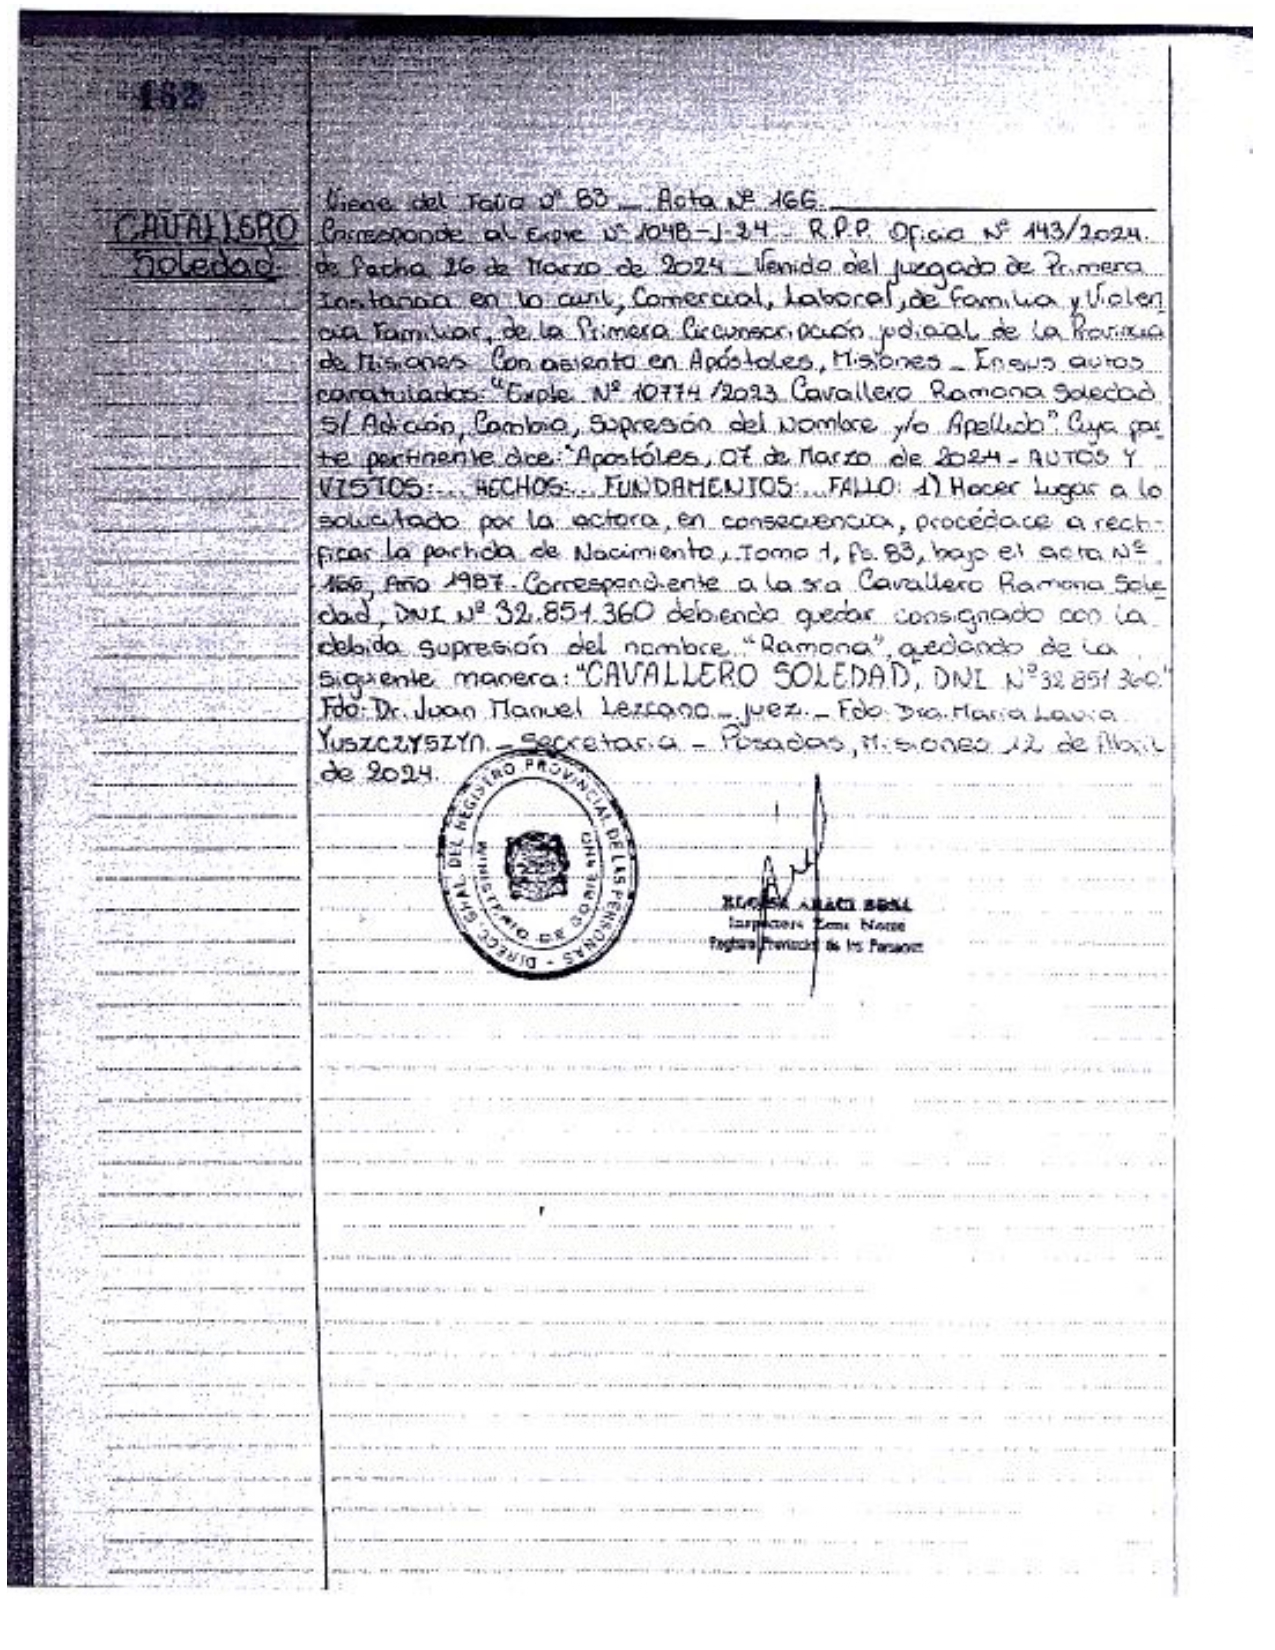 182
CAVALLERO
Soledad.
Viene del Folio Nº 83 _ Acta Nº 166.
Corresponde al Expte Nº 1048-J-24 - R.P.P. Oficio Nº 143/2024.
de fecha 26 de Marzo de 2024 _ Venido del juzgado de Primera
Instancia en lo civil, Comercial, Laboral, de familia y Violen
cia Familiar, de la Primera Circunscripción judicial de la Provincia
de Misiones Con asiento en Apóstoles, Misiones _ En sus autos
caratulados: "Expte Nº 10774/2023 Cavallero Ramona Soledad
S/ Adición, Cambio, Supresión del Nombre y/o Apellido". Cuya par
te pertinente dice: "Apostóles, 07 de Marzo de 2024 - AUTOS Y
VISTOS:... HECHOS:... FUNDAMENTOS:... FALLO: 1) Hacer Lugar a lo
solicitado por la actora, en consecuencia, procédace a recti-
ficar la partida de Nacimiento, Tomo 1, fs. 83, bajo el acta Nº
166, Año 1987. Correspondiente a la sra Cavallero Ramona Sole
dad, DNI Nº 32.851.360 debiendo quedar consignado con la
debida supresión del nombre "Ramona", quedando de la
siguiente manera: "CAVALLERO SOLEDAD, DNI Nº 32 851 360."
Fdo: Dr. Juan Manuel Lezcano _ juez. _ Fdo. Dra. Maria Laura
YUSZCZYSZYN. _ Secretaria _ Posadas, Misiones 12 de Abril
de 2024.
DIRECC. GRAL. DEL REGISTRO PROVINCIAL DE LAS PERSONAS -
MINISTERIO DE GOBIERNO
Inspectora Zona Norte
Registro Provincial de las Personas